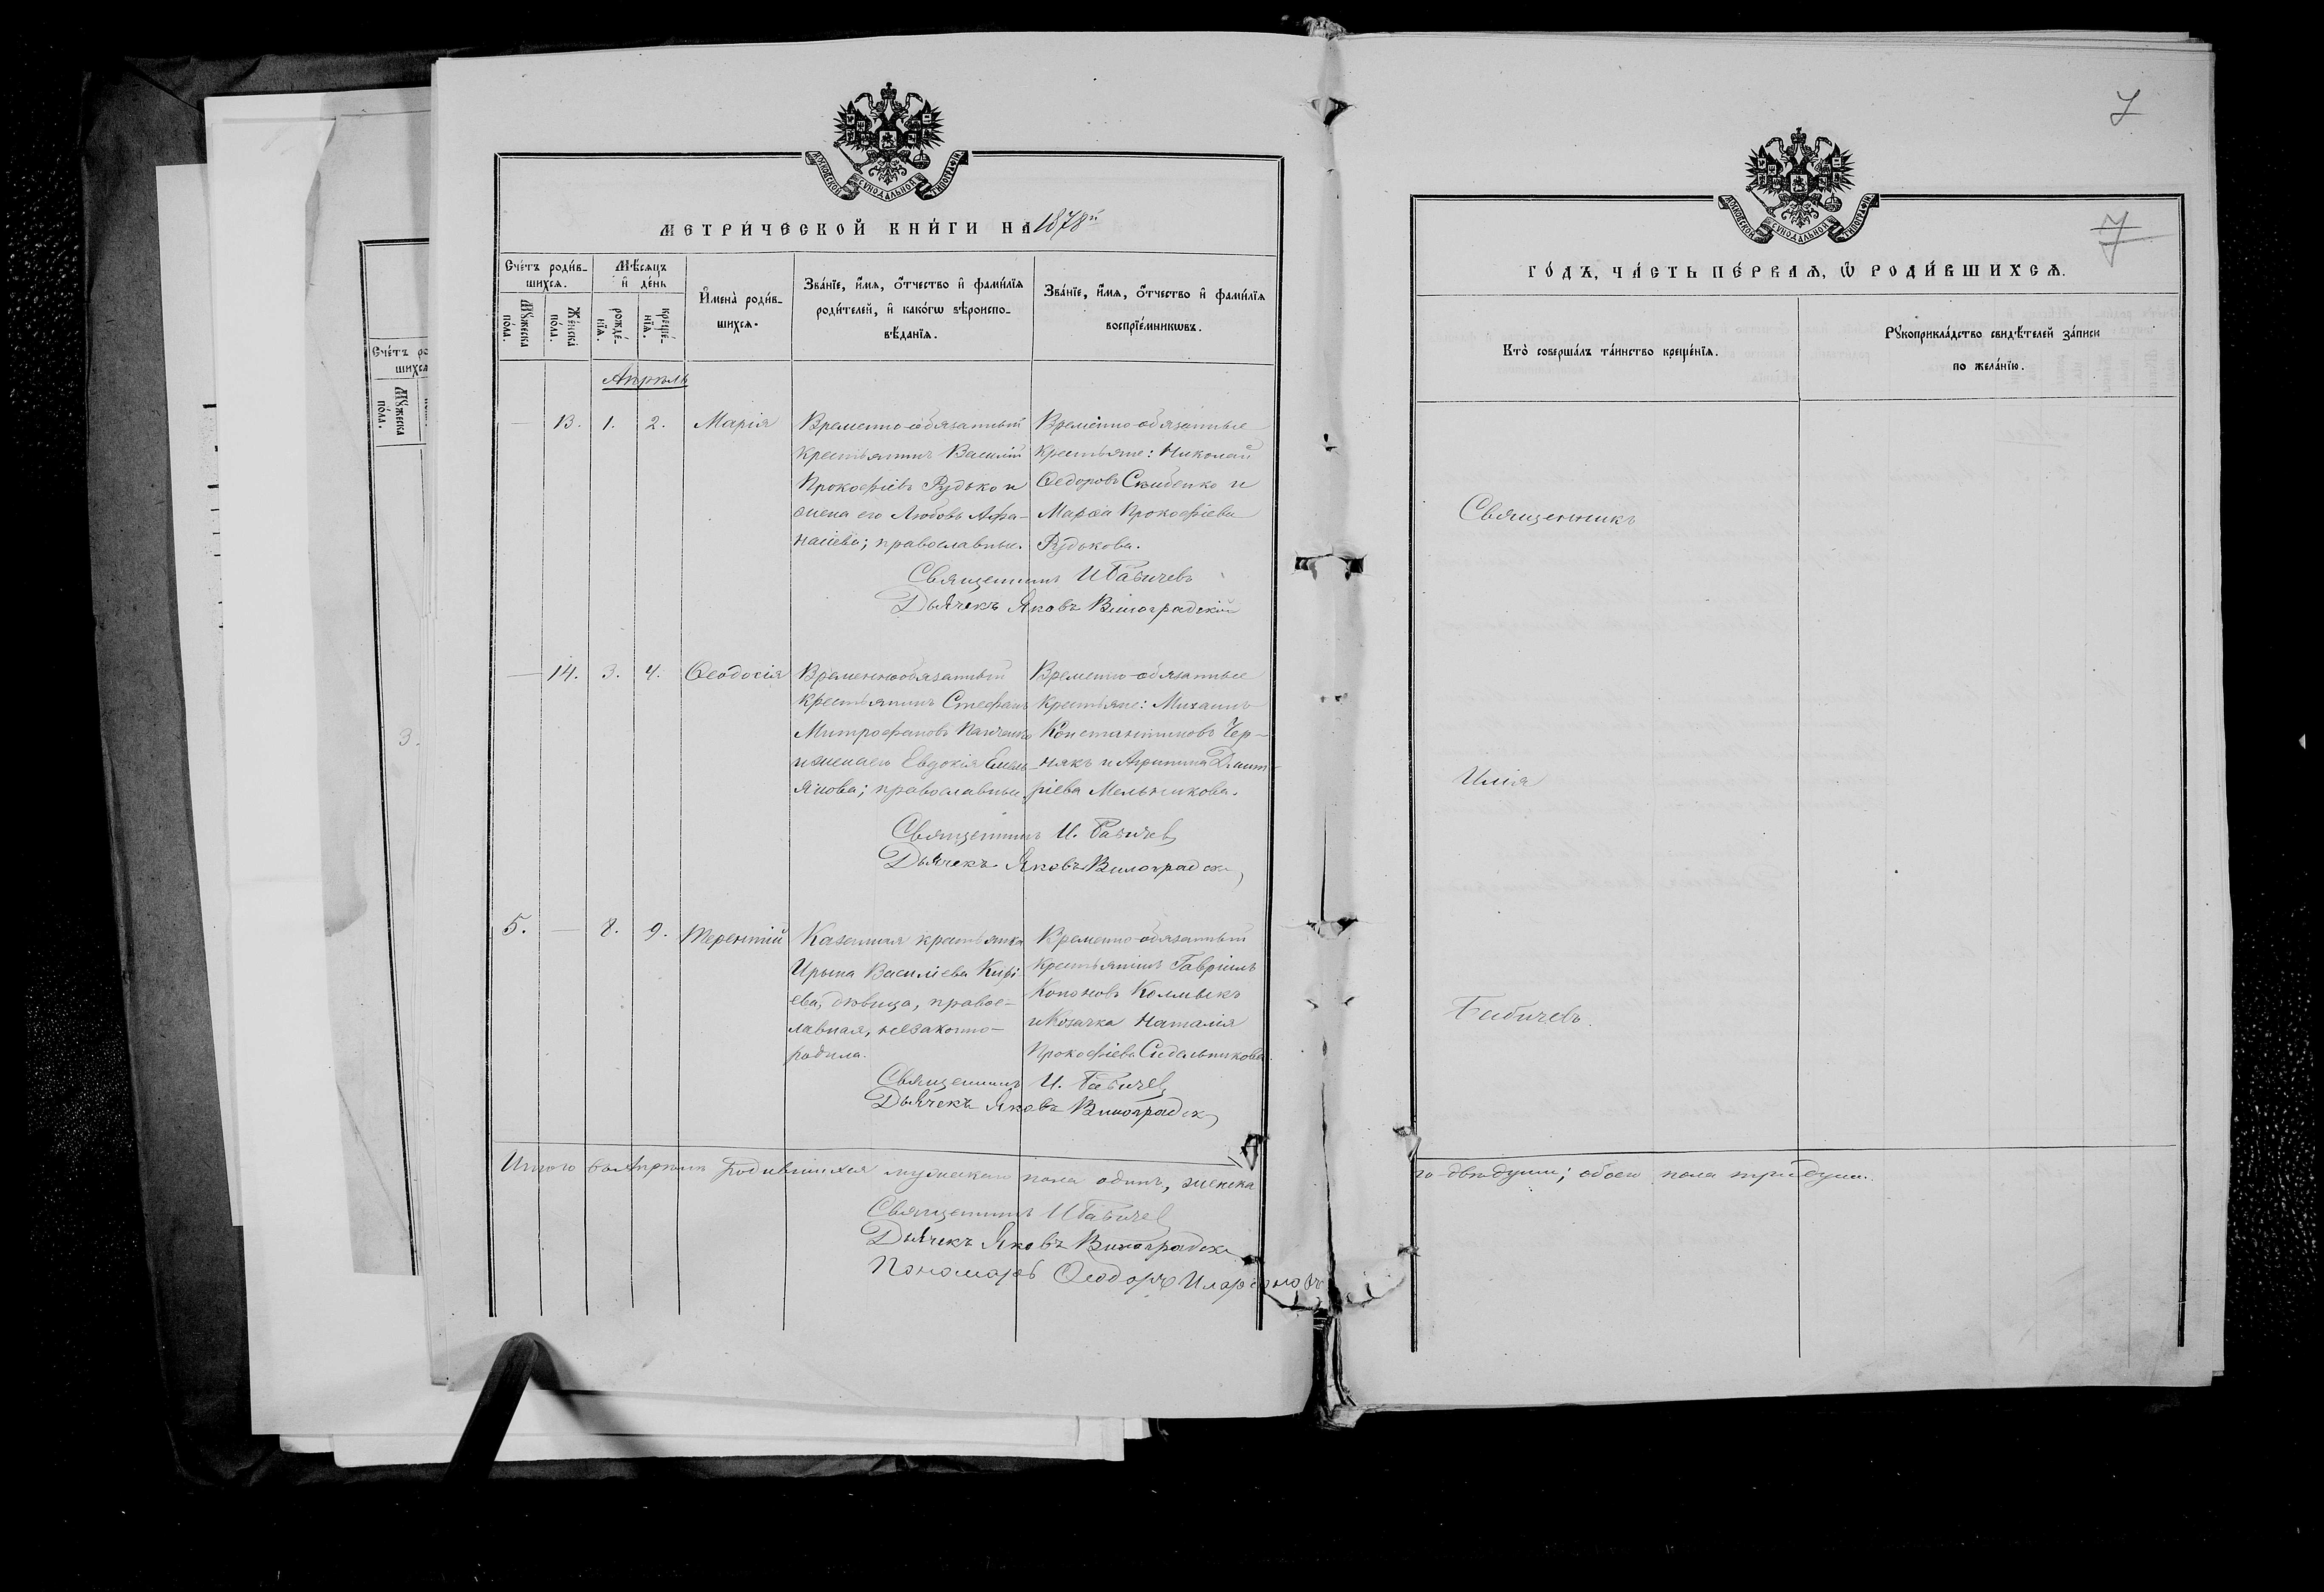 МОСКОВСКОЙ СѴНОДАЛЬНОЙ ТИПОГРАФІИ
МЕТРИ́ЧЕСКОЙ КНИ́ГИ НА 1878й
Сче́тъ роди́в-
шихсѧ.
Мѣ́сѧцъ
и҆ де́нь
И҆мена̀ роди́в-
шихсѧ.
Зва́нїе, и҆́мѧ, ѻ҆́тчество и҆ фами́лїѧ
роди́телей, и҆ како́гѡ вѣроиспо-
вѣ́данїѧ.
Зва́нїе, и҆́мѧ, ѻ҆́тчество и҆ фами́лїѧ
воспрїе́мникѡвъ.
Мꙋ́жеска
по́ла.
Же́нска
по́ла.
рожде́-
нїѧ.
креще́-
нїѧ.
Апрѣль
— 13. 1. 2. Марія
Временно-обязанный
крестьянинъ Василій
Прокофіевъ Рудько и
жена его Любовь Афа-
насіева; православные.
Временно-обязанные
крестьяне: Николай
Ѳедоровъ Скибенко и
Марѳа Прокофіева
Рудькова.
Священникъ И Бабичевъ
Дьячекъ Яковъ Виноградскій
— 14. 3. 4. Ѳеодосія
Временнообязанный
крестьянинъ Стефанъ
Митрофановъ Панченко
и жена его Евдокія Емель-
янова; православные.
Временно-обязанные
крестьяне: Михаилъ
Константиновъ Чер-
някъ и Агрипина Димит-
ріева Мельникова.
Священникъ И. Бабичев
Дьячекъ Яковъ Виноградск
5. — 8. 9. Терентій
Казенная крестьянка
Ирына Василіева Кирі-
ева, дѣвица, правос-
лавная, незаконно-
родила.
Временно-обязанный
крестьянинъ Гавріилъ
Кононовъ Колмыкъ
и Козачка Наталія
Прокофіева Сидельникова.
Священникъ И. Бабичев
Дьячекъ Яковъ Виноградск
Итого въ Апрѣлѣ родившихся мужескаго пола одинъ, женска
Священникъ И Бабичев
Дьячекъ Яковъ Виноградск
Пономарь Ѳеодоръ Иларіоновъ
Сче́тъ ро
шихсѧ
Мꙋ́жеска
по́ла.
3.
7
МОСКОВСКОЙ СѴНОДАЛЬНОЙ ТИПОГРАФІИ
7
ГО́ДЪ, ЧА́СТЬ ПЕ́РВАѦ, Ѡ҆ РОДИ́ВШИХСѦ.
Кто̀ соверша́лъ та́инство креще́нїѧ.
Рꙋкоприкла́дство свидѣ́телей за́писи
по жела́нїю.
Священникъ
Илія
Бабичевъ.
го двѣ души; обоего пола три души.